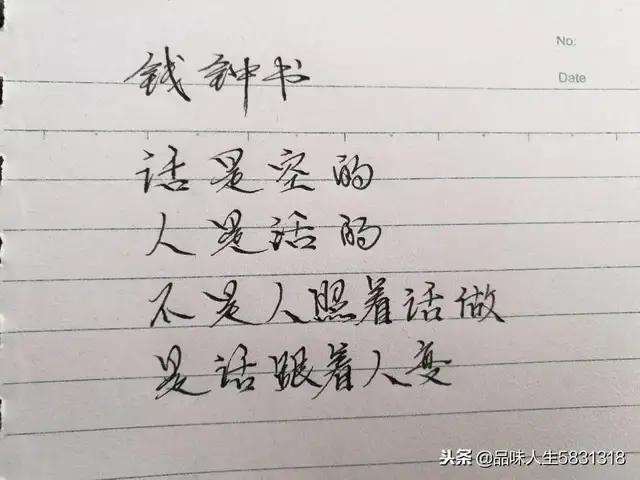 No:
Date
钱钟书
话是空的
人是活的
不是人照着话做
是话跟着人变
头条 @品味人生5831318